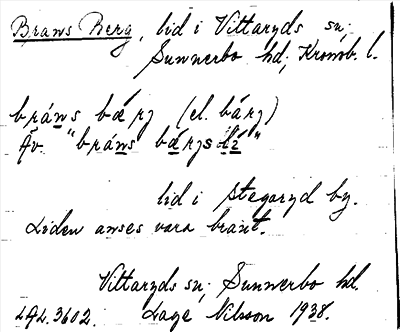 Brans Berg, lid i Vittaryds sn;
Sunnerbo hd; Kronob. l.
bráns bærg (el. bárg)
Äv. "bráns bærgs lí"
lid i Stegaryd by.
Liden anses vara brant.
Vittaryds sn; Sunnerbo hd.
LAL. 3602. Lage Nilsson 1938.